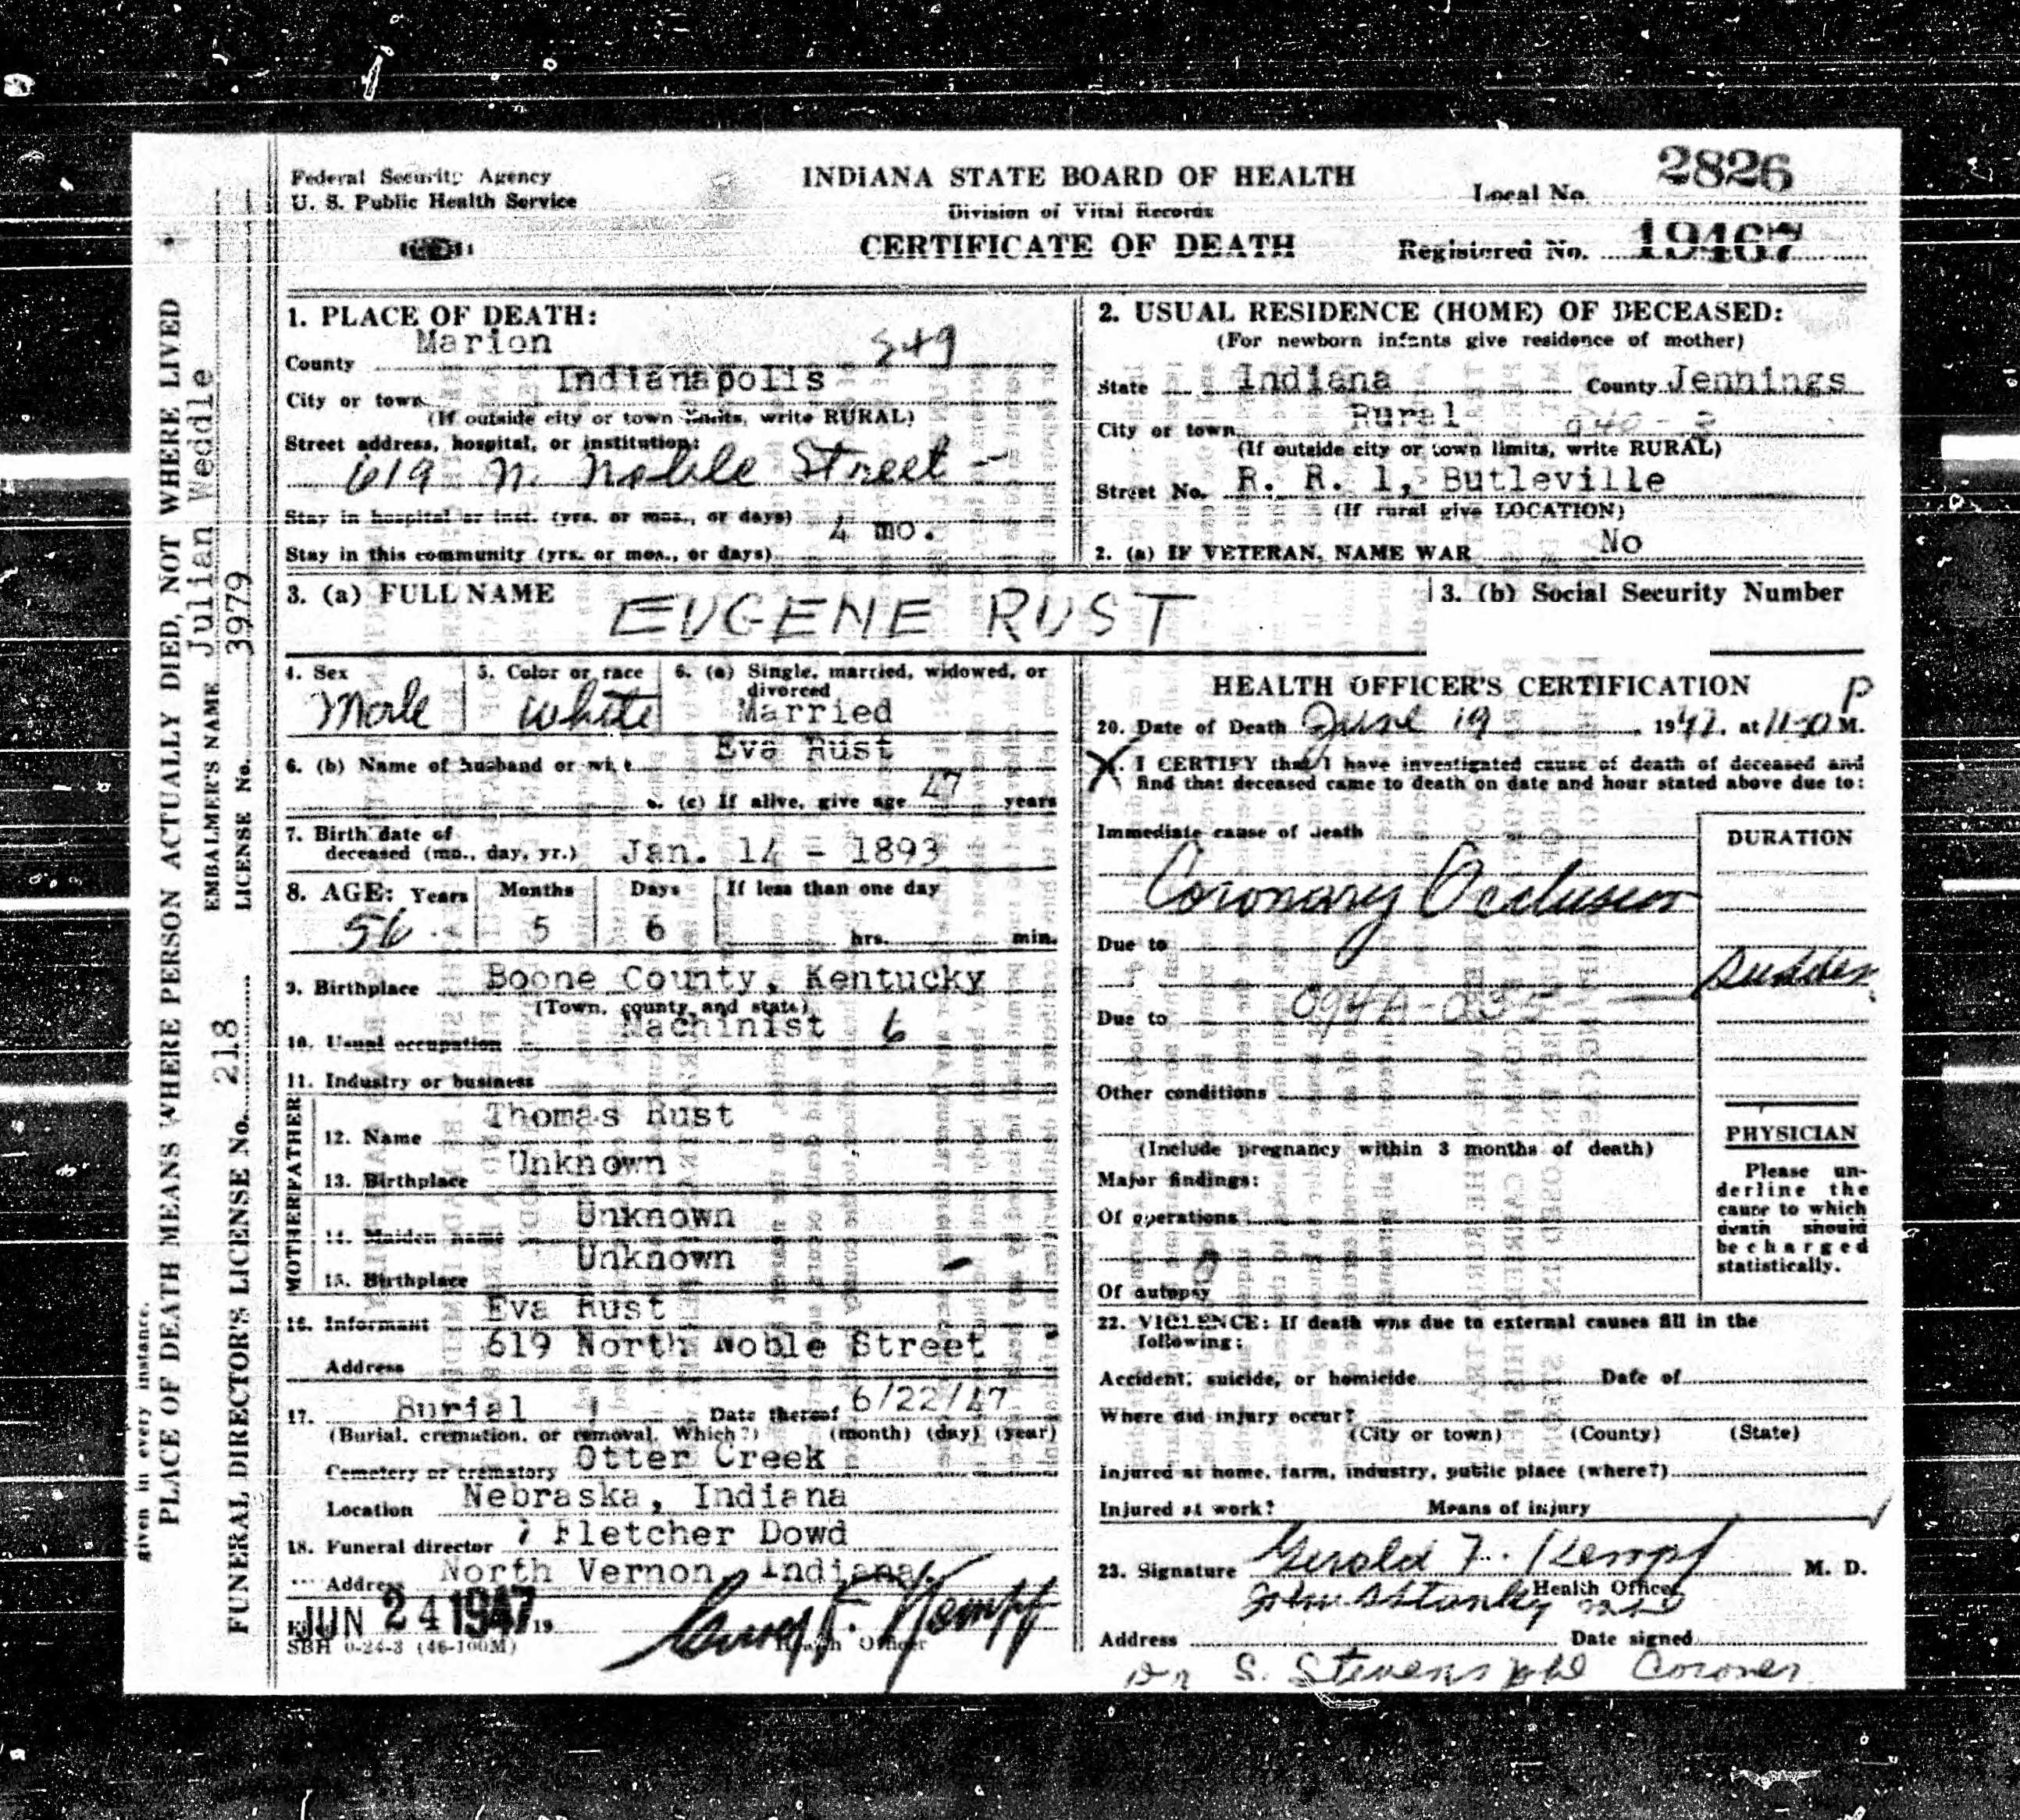 Federal Security Agency
U. S. Public Health Service
INDIANA STATE BOARD OF HEALTH
Division of Vital Records
CERTIFICATE OF DEATH
Local No. 2826
Registered No. 19467
1. PLACE OF DEATH:
County Marion 549
City or town Indianapolis
(If outside city or town limits, write RURAL)
Street address, hospital, or institution:
619 N. Noble Street
Stay in hospital or inst. (yrs. or mos., or days)
Stay in this community (yrs. or mos., or days) 4 mo.
2. USUAL RESIDENCE (HOME) OF DECEASED:
(For newborn infants give residence of mother)
State Indiana County Jennings
City or town Rural
(If outside city or town limits, write RURAL)
Street No. R. R. 1, Butleville
(If rural give LOCATION)
2. (a) IF VETERAN, NAME WAR No
3. (a) FULL NAME EUGENE RUST
3. (b) Social Security Number
4. Sex Male
5. Color or race White
6. (a) Single, married, widowed, or divorced Married
6. (b) Name of husband or wife Eva Rust
6. (c) If alive, give age 47 years
7. Birth date of
deceased (mo., day, yr.) Jan. 14 - 1893
8. AGE: Years Months Days If less than one day
56 5 6 hrs. min.
9. Birthplace Boone County, Kentucky
(Town, county and state)
10. Usual occupation Machinist 6
11. Industry or business
FATHER
12. Name Thomas Rust
13. Birthplace Unknown
MOTHER
14. Maiden name Unknown
15. Birthplace Unknown
16. Informant Eva Rust
Address 619 North Noble Street
17. Burial Date thereof 6/22/47
(Burial, cremation, or removal. Which?) (month) (day) (year)
Cemetery or crematory Otter Creek
Location Nebraska, Indiana
18. Funeral director Fletcher Dowd
Address North Vernon, Indiana.
JUN 24 1947 19
Health Officer
SBH 0-24-3 (46-100M)
HEALTH OFFICER'S CERTIFICATION
20. Date of Death June 19, 1947, at 11:30 P M.
I CERTIFY that I have investigated cause of death of deceased and
find that deceased came to death on date and hour stated above due to:
Immediate cause of death
DURATION
Coronary Occlusion
Due to
Sudden
Due to 094A-035
Other conditions
(Include pregnancy within 3 months of death)
Major findings:
Of operations
Of autopsy
PHYSICIAN
Please un-
derline the
cause to which
death should
be charged
statistically.
22. VIOLENCE: If death was due to external causes fill in the
following:
Accident, suicide, or homicide Date of
Where did injury occur?
(City or town) (County) (State)
Injured at home, farm, industry, public place (where?)
Injured at work? Means of injury
23. Signature Gerald F. Kempf M. D.
Health Officer
Address Date signed
S. Stevens Coroner
given in every instance.
PLACE OF DEATH MEANS WHERE PERSON ACTUALLY DIED, NOT WHERE LIVED
EMBALMER'S NAME Julian Weddle
FUNERAL DIRECTOR'S LICENSE No. 218 LICENSE No. 3979